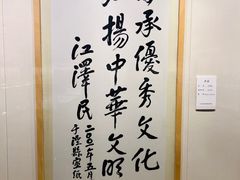 承優秀文化
揚中華文明
江澤民
二〇〇一年五月
于涇縣宣紙